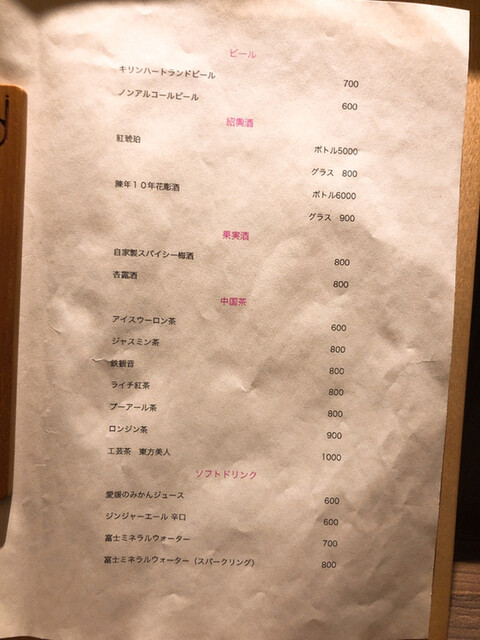 ビール
キリンハートランドビール 700
ノンアルコールビール 600
紹興酒
紅琥珀 ボトル5000
グラス 800
陳年１０年花彫酒 ボトル6000
グラス 900
果実酒
自家製スパイシー梅酒 800
杏露酒 800
中国茶
アイスウーロン茶 600
ジャスミン茶 800
鉄観音 800
ライチ紅茶 800
プーアール茶 800
ロンジン茶 900
工芸茶 東方美人 1000
ソフトドリンク
愛媛のみかんジュース 600
ジンジャーエール 辛口 600
富士ミネラルウォーター 700
富士ミネラルウォーター（スパークリング） 800